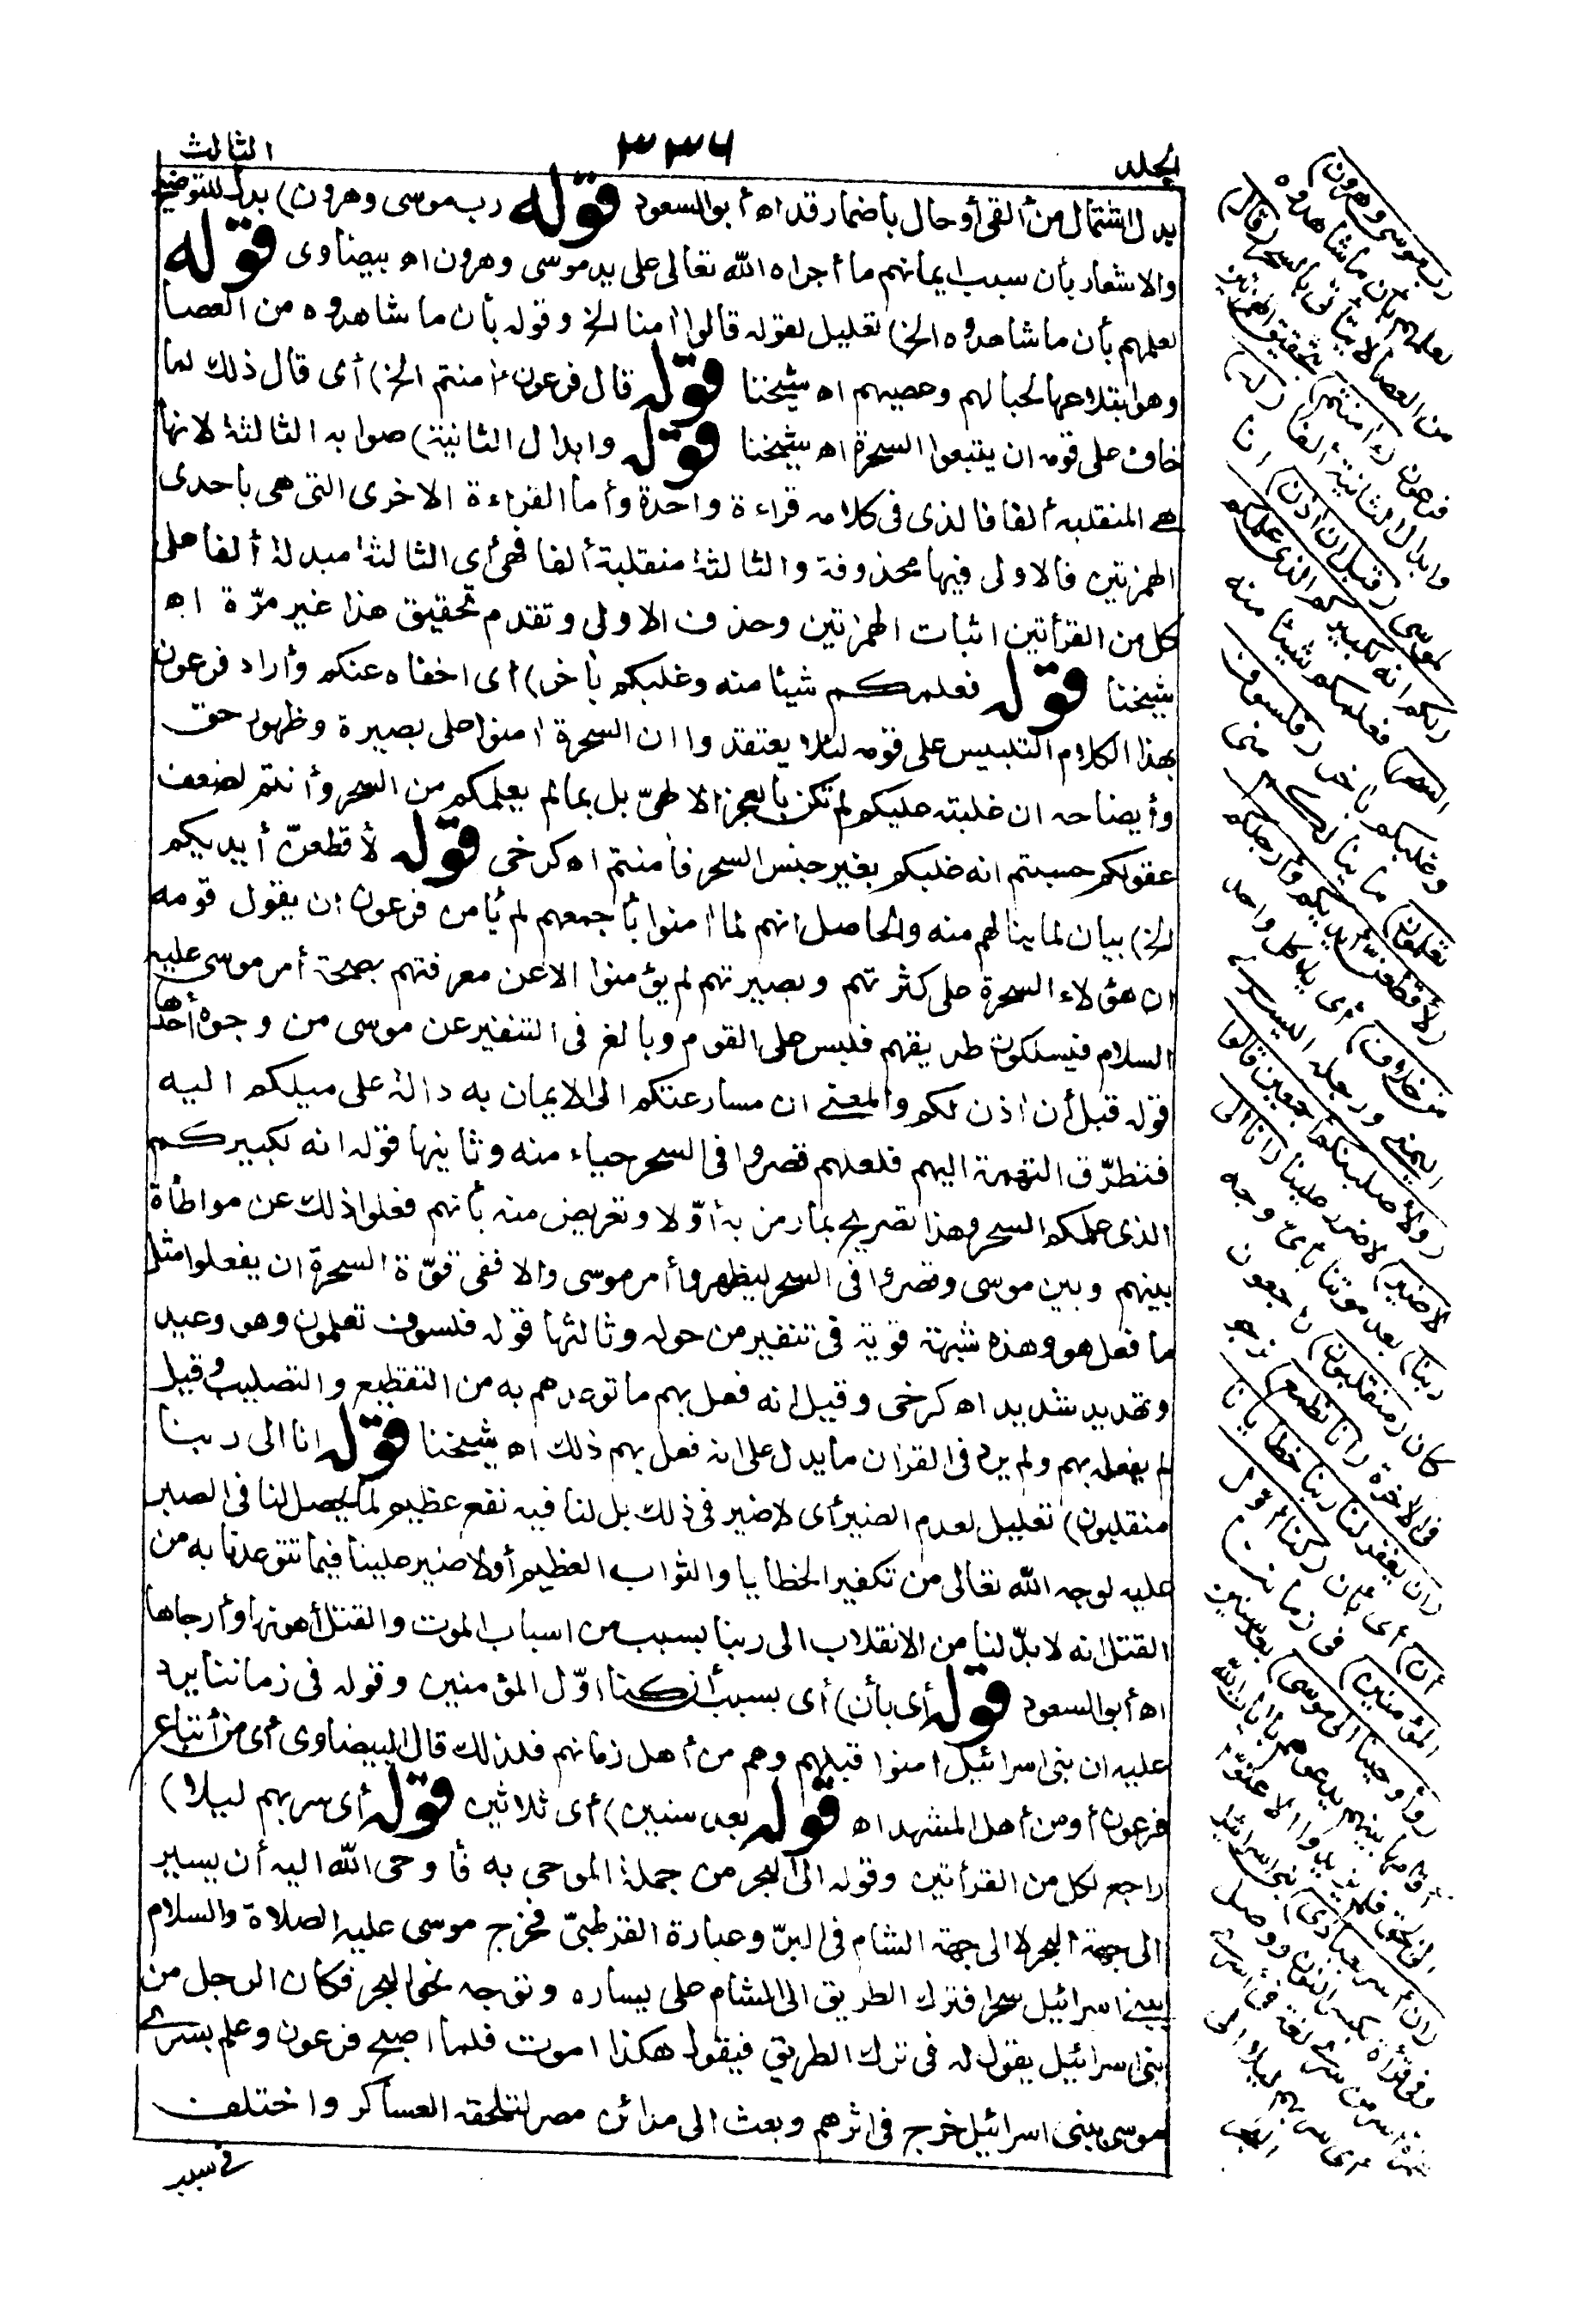 المجلد
٣٣٦
الثالث
بدل اشتمال من ألقى أو حال باضمار قد اه أبو السعود قوله رب موسى وهرون) بدل للتوضيح
والاشعار بأن سبب ايمانهم ما أجراه الله تعالى على يد موسى وهرون اه بيضاوى قوله
لعلمهم بأن ما شاهدوه الخ) تعليل لقوله قالوا امنا الخ وقوله بأن ما شاهدوه من العصا
وهو ابتلاعها لحبالهم وعصيهم اه شيخنا قوله قال فرعون ءامنتم الخ) أى قال ذلك لما
خاف على قومه ان يتبعوا السحرة اه شيخنا قوله وابدال الثانية) صوابه الثالثة لانها
هى المنقلبه ألفا فالذى فى كلامه قراءة واحدة وأما القراءة الاخرى التى هى باحدى
الهمزتين فالاولى فيها محذوفة والثالثة منقلبة ألفا فهى أى الثالثة مبدلة ألفا على
كل من القرأتين اثبات الهمزتين وحذف الاولى وتقدم تحقيق هذا غير مرّة اه
شيخنا قوله فعلمكم شيئا منه وغلبكم بآخر) أى اخفاه عنكم وأراد فرعون
بهذا الكلام التلبيس على قومه لئلا يعتقدوا ان السحرة امنوا على بصيرة وظهور حق
وأيضاحه ان غلبته عليكم لم تكن بالعجز الالهىّ بل بمالم يعلمكم من السحر وأنتم لضعف
عقولكم حسبتم انه غلبكم بغير جنس السحر فآمنتم اه كرخى قوله لأقطعنّ أيديكم
الخ) بيان لما ينالهم منه والحاصل انهم لما امنوا بأجمعهم لم يأمن فرعون ان يقول قومه
ان هؤلاء السحرة على كثرتهم وبصيرتهم لم يؤمنوا الا عن معرفتهم بصحة أمر موسى عليه
السلام فيسلكون طريقهم فلبس على القوم وبالغ فى التنفير عن موسى من وجوه أحدها
قوله قبل أن اذن لكم والمعنى ان مسارعتكم الى الايمان به دالة على ميلكم اليه
فتتطرّق التهمة اليهم فلعلهم قصروا فى السحر حياء منه وثانيها قوله انه لكبيركم
الذى علمكم السحر وهذا تصريح بما رمز به أوّلا وتعريض منه بأنهم فعلوا ذلك عن مواطأة
بينهم وبين موسى وقصروا فى السحر ليظهروا أمر موسى والا ففى قوّة السحرة ان يفعلوا مثل
ما فعل هو وهذه شبهة قوية فى تنفير من حوله وثالثها قوله فلسوف تعلمون وهو وعيد
وتهديد شديد اه كرخى وقيل انه فعل بهم ما توعدهم به من التقطيع والتصليب وقيل
لم يفعله بهم ولم يرد فى القران ما يدل على انه فعل بهم ذلك اه شيخنا قوله انا الى ربنا
منقلبون) تعليل لعدم الضير أى لا ضير فى ذلك بل لنا فيه نفع عظيم لما يحصل لنا فى الصبر
عليه لوجه الله تعالى من تكفير الخطايا والثواب العظيم أو لا ضير علينا فيما تتوعدنا به من
القتل انه لا بدّ لنا من الانقلاب الى ربنا بسبب من اسباب الموت والقتل أهونها وأرجاها
اه أبو السعود قوله أى بأن) أى بسبب أن كنا اوّل المؤمنين وقوله فى زماننا يرد
عليه ان بنى اسرائيل امنوا قبلهم وهم من أهل زمانهم فلذلك قال البيضاوى أى من أتباع
فرعون أو من أهل المشهد اه قوله بعد سنين) أى ثلاثين قوله أى سر بهم ليلا)
راجع لكل من القرأتين وقوله الى البحر من جملة الموحى به فأوحى الله اليه أن يسير
الى جهة البحر لا الى جهة الشام فى البرّ وعبارة القرطبىّ فخرج موسى عليه الصلاة والسلام
ببنى اسرائيل سحرا فترك الطريق الى الشام على يساره وتوجه نحو البحر فكان الرجل من
بنى اسرائيل يقول له فى ترك الطريق فيقول هكذا امرت فلما اصبح فرعون وعلم بسرى
موسى ببنى اسرائيل خرج فى اثرهم وبعث الى مدائن مصر لتلحقه العساكر واختلف
فى سبب
رب موسى وهرون)
لعلمهم بأن ما شاهدوه
من العصا لا يتأتى بالسحر (قال)
فرعون (ءامنتم) بتحقيق الهمزتين
وابدال الثانية ألفا (له)
لموسى (قبل ان اذن) انا
لكم انه لكبيركم الذى علمكم
السحر) فعلمكم شيئا منه
وغلبكم بآخر (فلسوف
تعلمون) ما ينالكم منى
(لأقطعنّ أيديكم وأرجلكم
من خلاف) أى يد كل واحد
اليمنى ورجله اليسرى
(ولأصلبنكم اجمعين قالوا
لا ضير) لا ضرر علينا (انا الى
ربنا) بعد موتنا بأىّ وجه
كان (منقلبون) راجعون
فى الاخرة (انا نطمع) نرجو
(ان يغفر لنا ربنا خطايانا
أن) أى بأن (كنا أوّل
المؤمنين) فى زماننا
(وأوحينا الى موسى) بعد سنين
أقامها بينهم يدعوهم بآيات الله
الى الحق فلم يزيدوا الا عتوّا
(ان أسر بعبادى) بنى اسرائيل
وفى قرأة بكسر النون ووصل
همزة أسر من سرى لغة فى أسرى
أى سر بهم ليلا الى
البحر